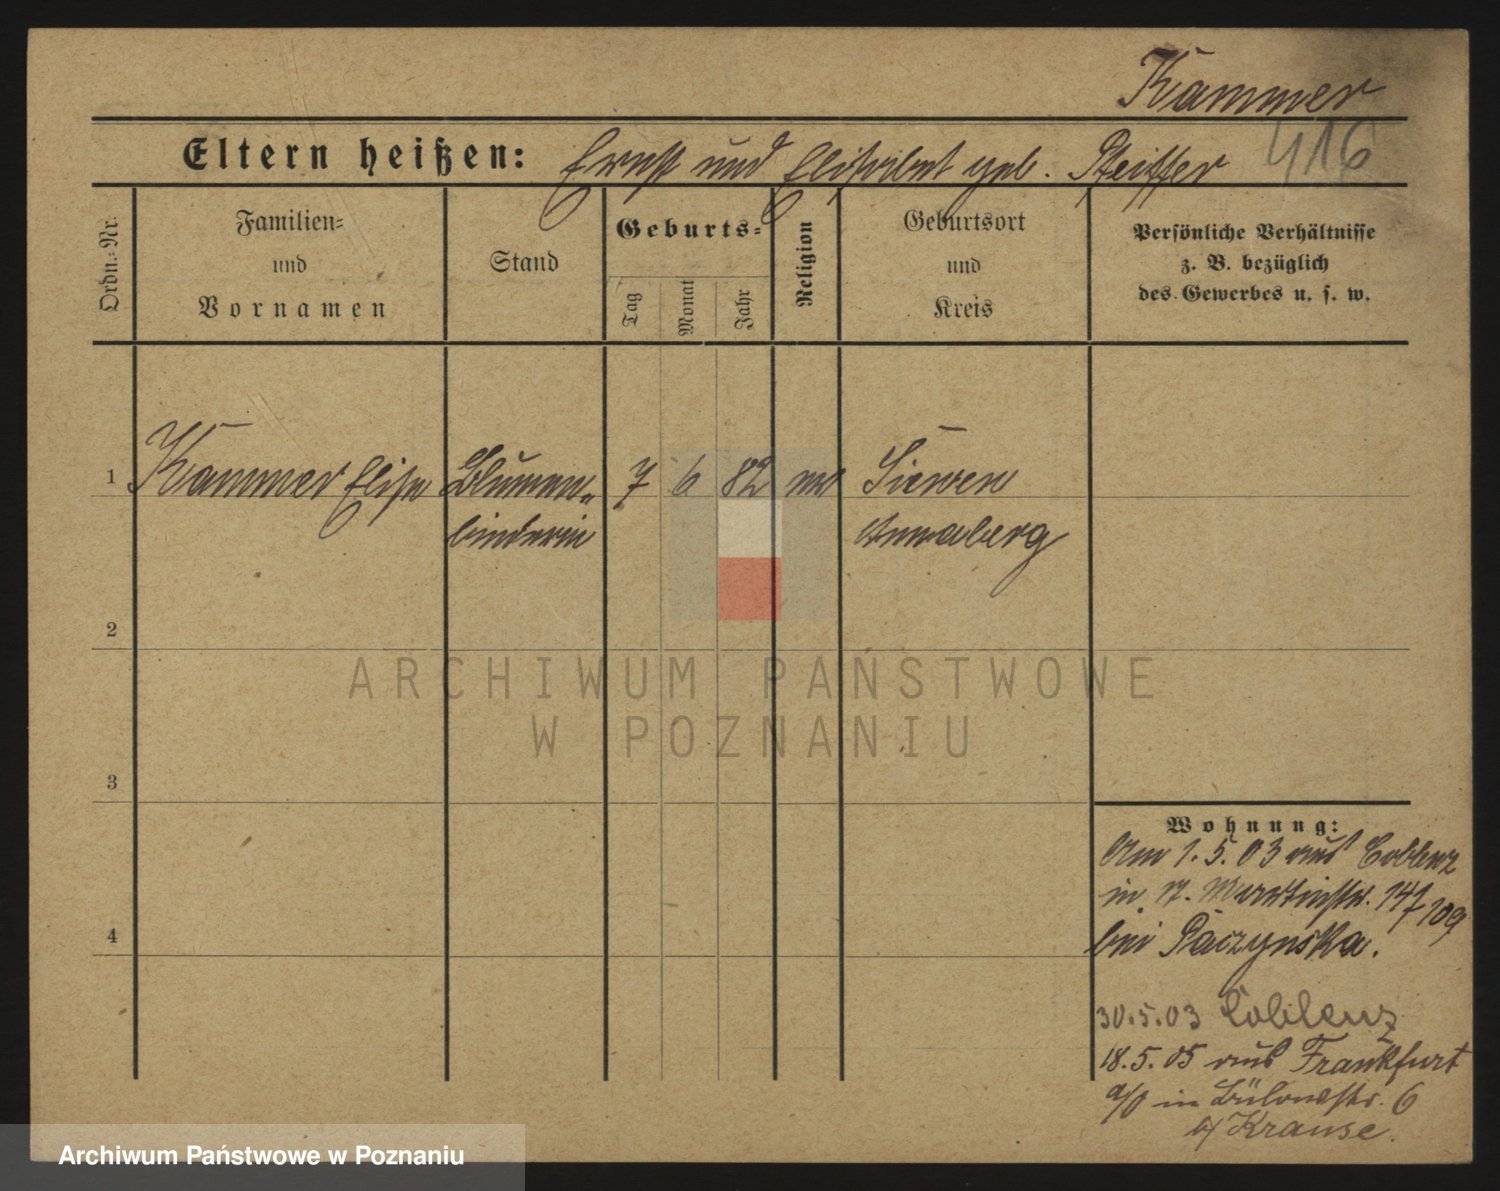 Kammer
416
Eltern heißen: Ernst und Elisabet geb. Pfeiffer
Ordn.-Nr.
Familien-
und
Vornamen
Stand
Geburts-
Tag
Monat
Jahr
Religion
Geburtsort
und
Kreis
Persönliche Verhältnisse
z. B. bezüglich
des Gewerbes u. s. w.
1 Kammer Elise Blumen- 7 6 82
binderin Annaberg
2
3
4
ARCHIWUM PAŃSTWOWE
W POZNANIU
Wohnung:
Am 1.5.03 aus Coblenz
in Martinstr.
bei Paczynska.
30.5.03 Coblenz
18.5.05 aus Frankfurt
a/O in Bülowstr. 6
b/ Krause.
Archiwum Państwowe w Poznaniu